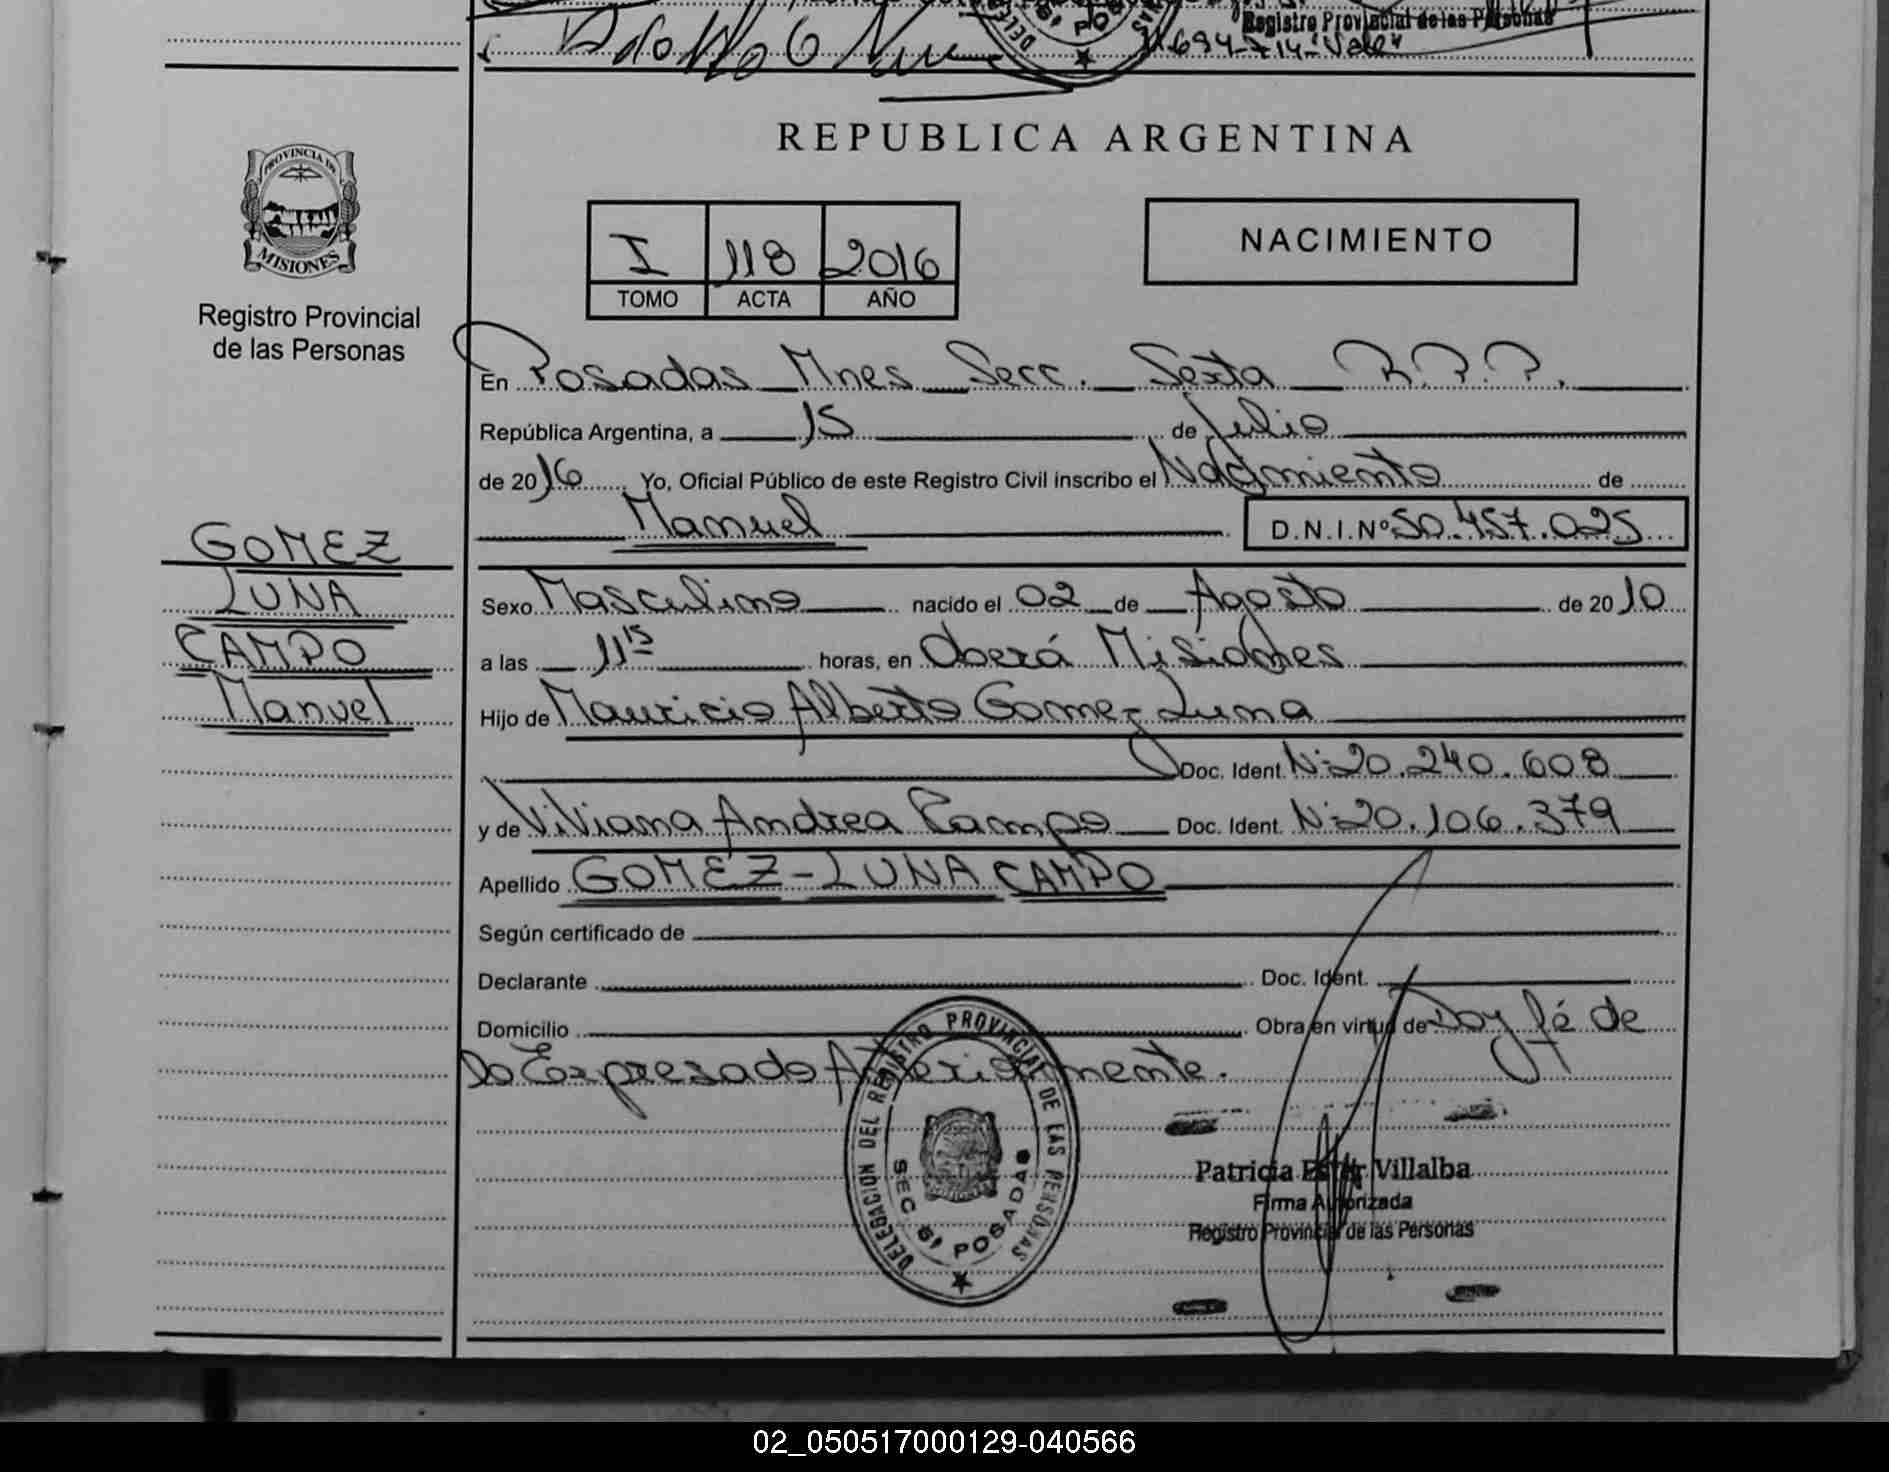 Registro Provincial de las Personas
11.694-714-"Vale"
REPUBLICA ARGENTINA
PROVINCIA DE
MISIONES
Registro Provincial
de las Personas
I 118 2016
TOMO ACTA AÑO
NACIMIENTO
En Posadas Mnes Secc. Sexta R.P.P.
República Argentina, a 15 de Julio
de 2016 Yo, Oficial Público de este Registro Civil inscribo el Nacimiento de
Manuel D.N.I.Nº 50.457.025
GOMEZ
LUNA
CAMPO
Manuel
Sexo Masculino nacido el 02 de Agosto de 2010
a las 11 15 horas, en Oberá Misiones
Hijo de Mauricio Alberto Gomez Luna
Doc. Ident. Nº 20.240.608
y de Viviana Andrea Campo Doc. Ident. Nº 20.106.379
Apellido GOMEZ-LUNA CAMPO
Según certificado de
Declarante Doc. Ident.
Domicilio Obra en virtud de Doy fé de
lo Expresado Anteriormente.
DELEGACION DEL REGISTRO PROVINCIAL DE LAS PERSONAS
SEC 6ª POSADAS
Patricia Ester Villalba
Firma Autorizada
Registro Provincial de las Personas
02_050517000129-040566